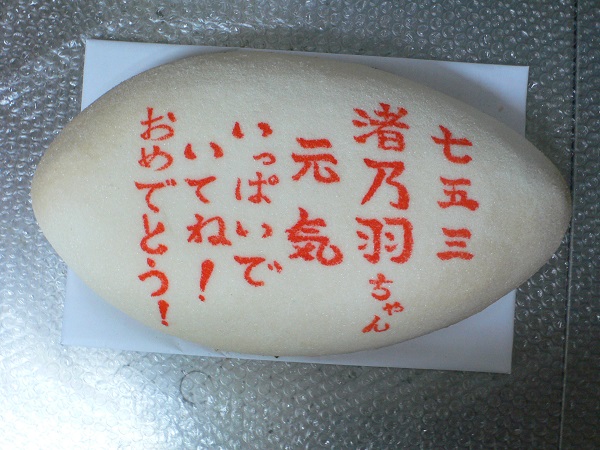 七五三
渚乃羽ちゃん
元気
いっぱいで
いてね！
おめでとう！